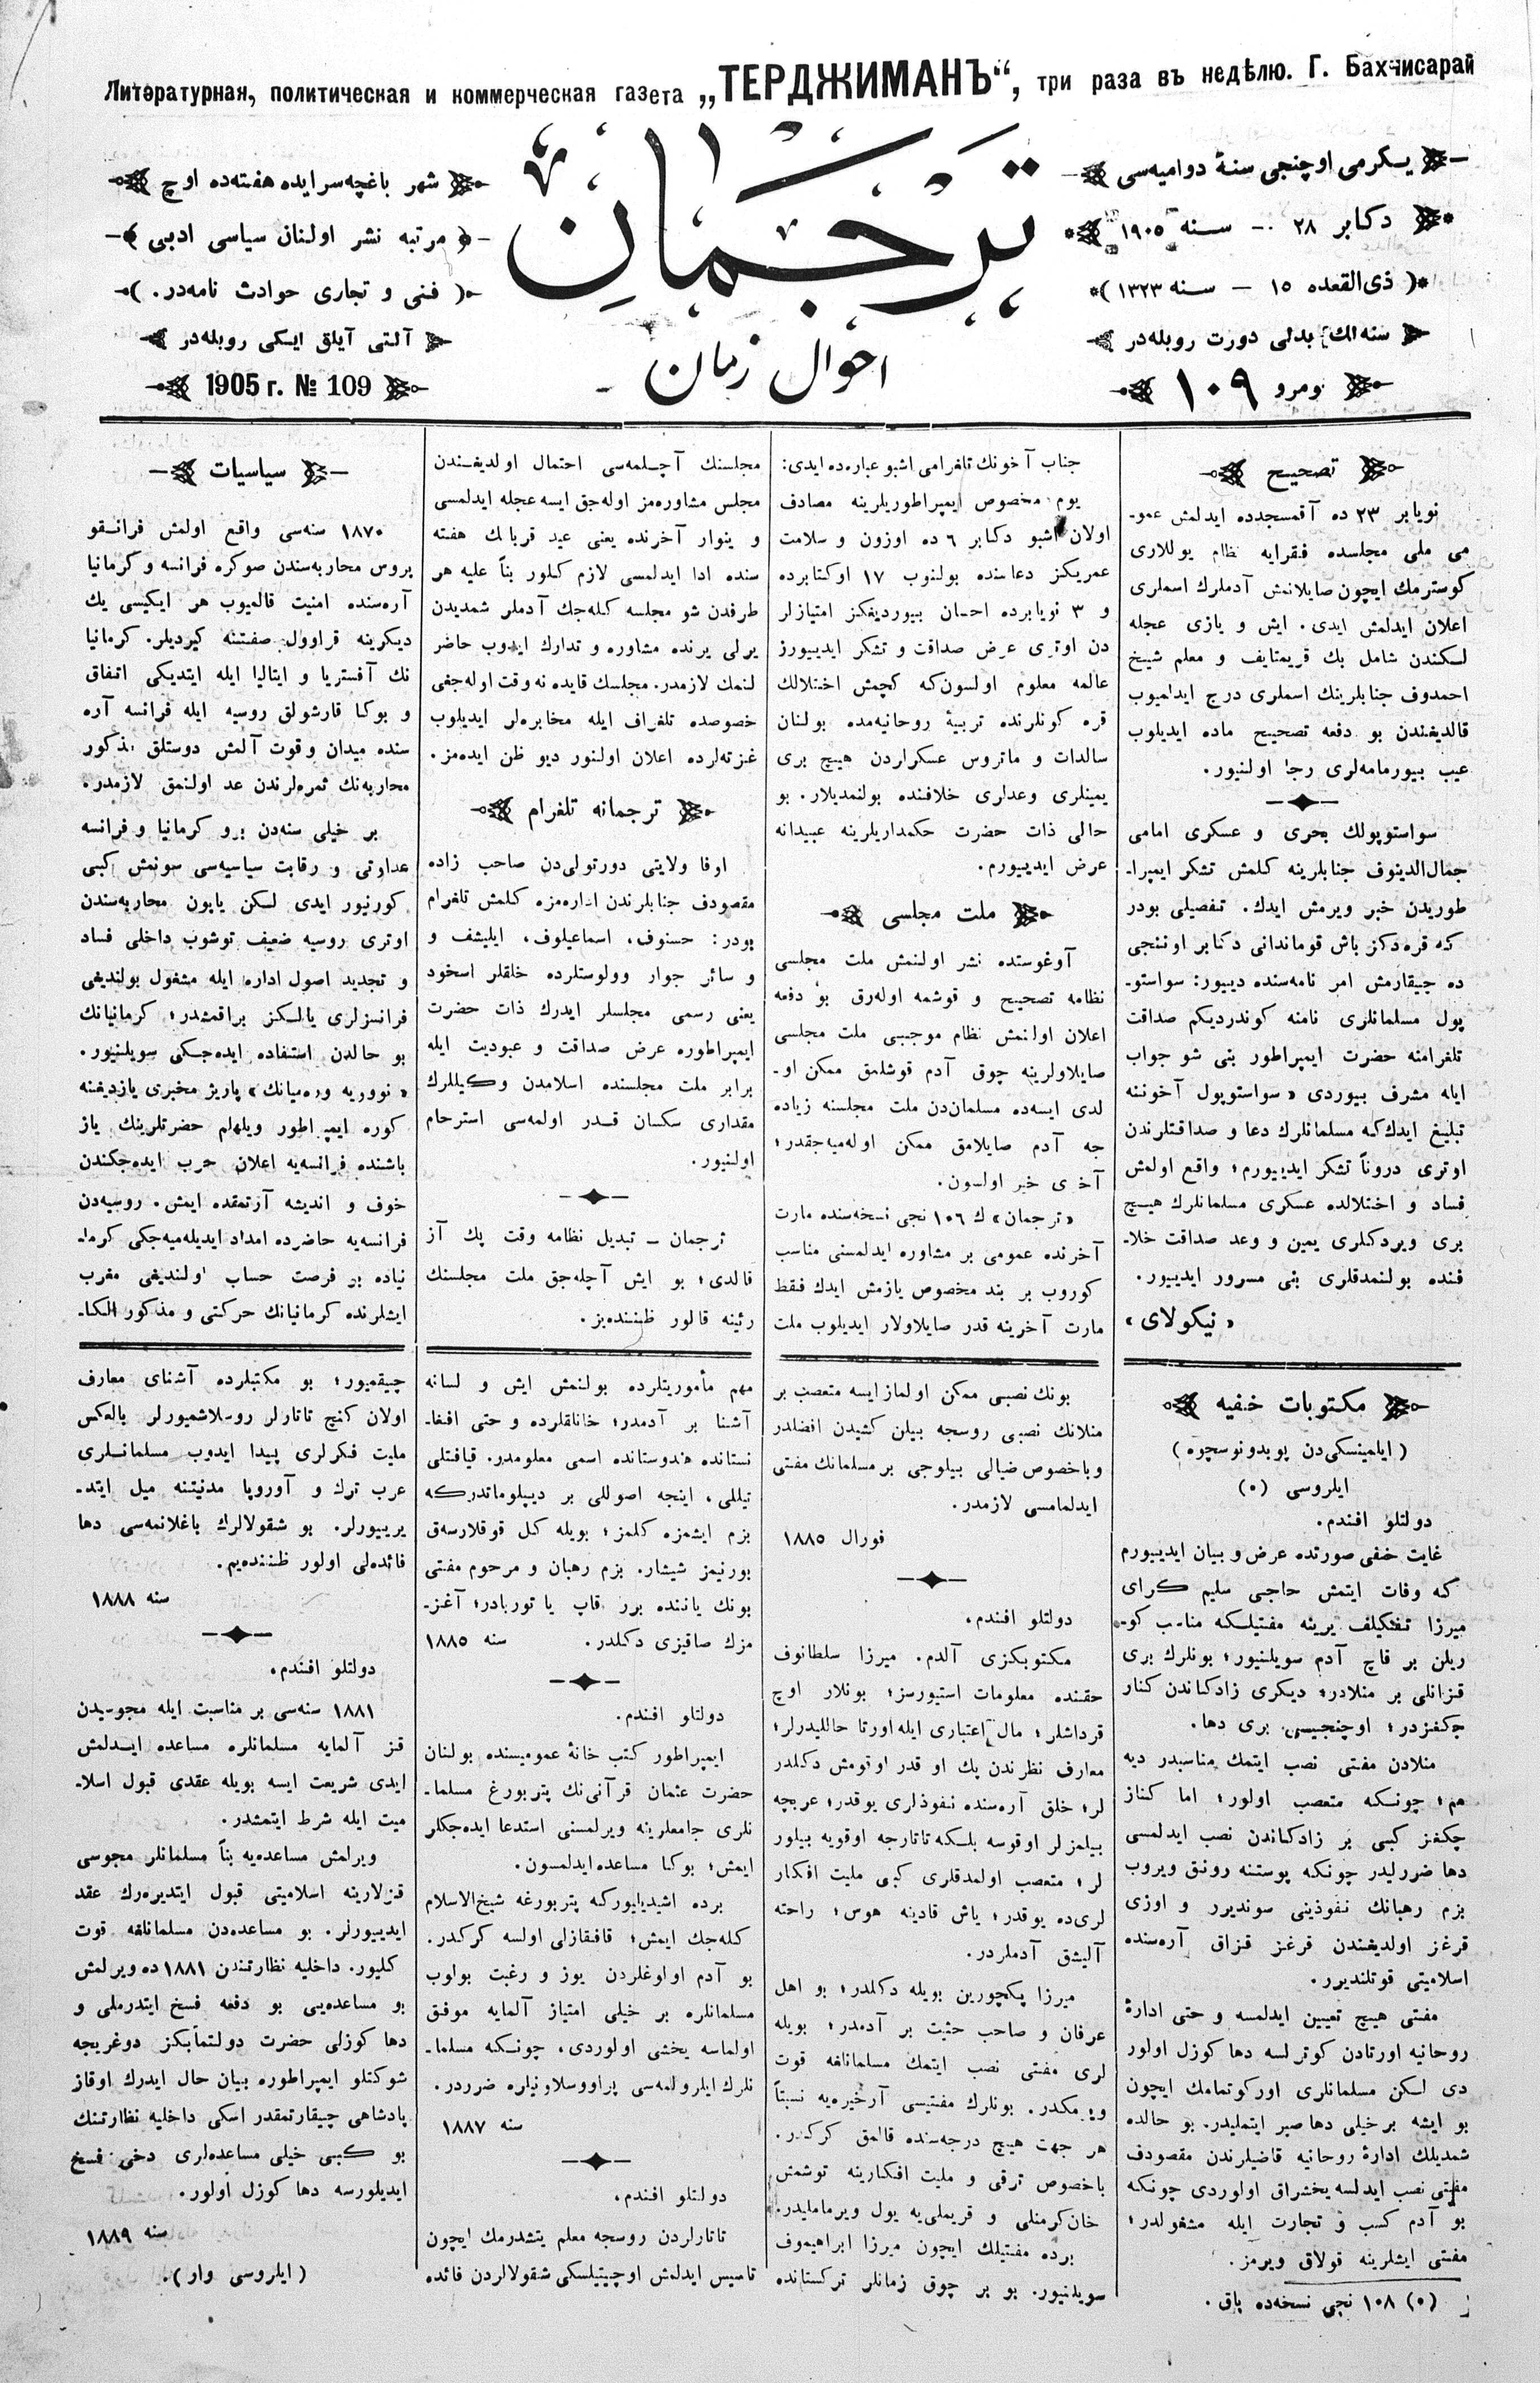 Литературная, политическая и коммерческая газета „ТЕРДЖИМАНЪ“, три раза въ недѣлю. Г. Бахчисарай
يكرمی اوچنجی سنهٔ دواميه‌سی
دكابر ٢٨ — سنه ١٩٠٥
ذی‌القعده ١٥ — سنه ١٣٢٣
سنه‌لك بدلی دورت روبله‌در
نومرو ١٠٩
ترجمان
احوال زمان
شهر باغچه‌سرايده هفته‌ده اوچ
مرتبه نشر اولنان سياسی ادبی
فنی و تجاری حوادث نامه‌در.
آلتی آيلق ايكی روبله‌در
1905 г. № 109
تصحيح
نويابر ٢٣ ده آقمسجدده ايدلمش عمو-
می ملی مجلسده فقرايه نظام يوللاری
كوسترمك ايچون صايلانمش آدملرك اسملری
اعلان ايدلمش ايدی. ايش و يازی عجله
لكندن شامل بك قريمتايف و معلم شيخ
احمدوف جنابلرينك اسملری درج ايدلميوب
قالديغندن بو دفعه تصحيح ماده ايديلوب
عيب بيورمامه‌لری رجا اولنيور.
سواستوپولك بحری و عسكری امامی
جمال‌الدينوف جنابلرينه كلمش تشكر ايمپرا-
طوريدن خبر ويرمش ايدك. تفصيلی بودر
كه قره‌دكز باش قوماندانی دكابر اوننجی
ده چيقارمش امر نامه‌سنده ديیور: سواستو-
پول مسلمانلری نامنه كوندرديكم صداقت
تلغرامنه حضرت ايمپراطور بنی شو جواب
ايله مشرف بيوردی «سواستوپول آخوننه
تبليغ ايدك‌كه مسلمانلرك دعا و صداقتلرندن
اوتری دروناً تشكر ايدييورم؛ واقع اولمش
فساد و اختلالده عسكری مسلمانلرك هيچ
بری ويردكلری يمين و وعد صداقت خلا-
فنده بولنمدقلری بنی مسرور ايدييور.
«نيكولای»
جناب آخونك تلغرامی اشبو عباره‌ده ايدی:
يوم مخصوص ايمپراطوريلرينه مصادف
اولان اشبو دكابر ٦ ده اوزون و سلامت
عمريكز دعاسنده بولنوب ١٧ اوكتابرده
و ٣ نويابرده احسان بيورديغكز امتيازلر
دن اوتری عرض صداقت و تشكر ايدييورز
عالمه معلوم اولسون‌كه كچمش اختلالك
قره كونلرنده تربيهٔ روحانيه‌مده بولنان
سالدات و ماتروس عسكرلردن هيچ بری
يمينلری وعدلری خلافنده بولنمديلار. بو
حالی ذات حضرت حكمداريلرينه عبيدانه
عرض ايدييورم.
ملت مجلسی
آوغوستده نشر اولنمش ملت مجلسی
نظامه تصحيح و قوشمه اوله‌رق بو دفعه
اعلان اولنمش نظام موجبی ملت مجلسی
صايلاولرينه چوق آدم قوشلمق ممكن او-
لدی ايسه‌ده مسلمان‌دن ملت مجلسنه زياده
جه آدم صايلامق ممكن اوله‌ميه‌جقدر؛
آخری خبر اولسون.
«ترجمان» ك ١٠٦ نجی نسخه‌سنده مارت
آخرنده عمومی بر مشاوره ايدلمسنی مناسب
كوروب بر بند مخصوص يازمش ايدك فقط
مارت آخرينه قدر صايلاولار ايديلوب ملت
مجلسنك آچلمه‌سی احتمال اولديغندن
مجلس مشاوره‌مز اوله‌جق ايسه عجله ايدلمسی
و ينوار آخرنده يعنی عيد قربانك هفته
سنده ادا ايدلمسی لازم كلور بناً عليه هر
طرفدن شو مجلسه كله‌جك آدملر شمديدن
يرلی يرنده مشاوره و تدارك ايدوب حاضر
لنمك لازمدر. مجلسك قايده نه وقت اوله‌جغی
خصوصده تلغراف ايله مخابره‌لر ايديلوب
غزته‌لرده اعلان اولنور ديو ظن ايده‌مز.
ترجمانه تلغرام
اوفا ولايتی دورتولی‌دن صاحب زاده
مقصودف جنابلرندن اداره‌مزه كلمش تلغرام
بودر: حسنوف، اسماعيلوف، ايليشف و
و سائر جوار وولوستلرده خلقلر اسخود
يعنی رسمی مجلسلر ايدرك ذات حضرت
ايمپراطوره عرض صداقت و عبوديت ايله
برابر ملت مجلسنده اسلامدن وكيللرك
مقداری سكسان قدر اولمه‌سی استرحام
اولنيور.
ترجمان — تبديل نظامه وقت پك آز
قالدی؛ بو ايش آچله‌جق ملت مجلسنك
رئينه قالور ظننده‌يز.
سياسيات
١٨٧٠ سنه‌سی واقع اولمش فرانقو
پروس محاربه‌سندن صوكره فرانسه و كرمانيا
آره‌سنده امنيت قالميوب هر ايكيسی يك
ديكرينه قراوول صفتنه كيرديلر. كرمانيا
نك آفستريا و ايتاليا ايله ايتديكی اتفاق
و بوكا قارشولق روسيه ايله فرانسه آره
سنده ميدان و قوت آلمش دوستلق مذكور
محاربه‌نك ثمره‌لرندن عد اولنمق لازمدر.
بر خيلی سنه‌دن برو كرمانيا و فرانسه
عداوتی و رقابت سياسيه‌سی سونمش كبی
كورنيور ايدی لكن ياپون محاربه‌سندن
اوتری روسيه ضعيف توشوب داخلی فساد
و تجديد اصول اداره ايله مشغول بولنديغی
فرانسزلری يالكز براقمشدر؛ كرمانيانك
بو حالدن استفاده ايده‌جكی سويلنيور.
«نووريه وره‌ميانك» پاريژ مخبری يازديغنه
كوره ايمپراطور ويلهلم حضرتلرينك ياز
باشنده فرانسه‌يه اعلان حرب ايده‌جكندن
خوف و انديشه آزتمقده ايمش. روسيه‌دن
فرانسه‌يه حاضرده امداد ايديله‌ميه‌جكی كرما-
نياده بر فرصت حساب اولنديغی مغرب
ايشلرنده كرمانيانك حركتی و مذكور الكا-
مكتوبات خفيه
(ايلمينسكی‌دن پوبدونوسچوه)
ايلروسی (٠)
دولتلو افندم.
غايت خفی صورتده عرض و بيان ايدييورم
كه وفات ايتمش حاجی سليم كرای
ميرزا تفتكيلف يرينه مفتيلكه مناسب كو-
ريلن بر قاچ آدم سويلنيور؛ بونلرك بری
قزانلی بر منلادر؛ ديكری زادكاندن كنار
چكغزدر؛ اوچنجيسی بری دها.
منلادن مفتی نصب ايتمك مناسبدر ديه
مم؛ چونكه متعصب اولور؛ اما كناز
چكغز كبی بر زادكاندن نصب ايدلمسی
دها ضررليدر چونكه پوستنه رونق ويروب
بزم رهبانك نفوذينی سونديرر و اوزی
قرغز اولديغندن قرغز قزاق آره‌سنده
اسلاميتی قوتلنديرر.
مفتی هيچ تعيين ايدلمسه و حتی ادارهٔ
روحانيه اورتادن كوترلسه دها كوزل اولور
دی لكن مسلمانلری اوركوتمامك ايچون
بو ايشه بر خيلی دها صبر ايتمليدر. بو حالده
شمديلك ادارهٔ روحانيه قاضيلرندن مقصودف
مفتی نصب ايدلسه يخشراق اولوردی چونكه
بو آدم كسب و تجارت ايله مشغولدر؛
مفتی ايشلرينه قولاق ويرمز.
(٠) ١٠٨ نجی نسخه‌ده باق.
بونك نصبی ممكن اولماز ايسه متعصب بر
منلانك نصبی روسجه بيلن كشيدن افضلدر
وباخصوص ضيالی بيلوجی بر مسلمانك مفتی
ايدلمامسی لازمدر.
فورال ١٨٨٥
دولتلو افندم،
مكتوبكزی آلدم. ميرزا سلطانوف
حقنده معلومات استيورسز؛ بونلار اوچ
قرداشلر؛ مال اعتباری ايله اورتا حالليدرلر؛
معارف نظرندن پك او قدر اوقومش دكلدر
لر؛ خلق آره‌سنده نفوذلری يوقدر؛ عربچه
بيلمزلر اوقوسه بلكه تاتارجه اوقويه بيلور
لر؛ متعصب اولمدقلری كبی مليت افكار
لری‌ده يوقدر؛ ياش قادينه هوس؛ راحته
آليشق آدملردر.
ميرزا پكچورين بويله دكلدر؛ بو اهل
عرفان و صاحب حثيت بر آدمدر؛ بويله
لری مفتی نصب ايتمك مسلمانلغه قوت
ويرمكدر. بونلرك مفتيسی آرخيره‌يه نسبتاً
هر جهت هيچ درجه‌سنده قالمق كركدر.
باخصوص ترقی و مليت افكارينه توشمش
خان‌كرمنلی و قريملی‌يه يول ويرماملیدر.
برده مفتيلك ايچون ميرزا ابراهيموف
سويلنيور. بو بر چوق زمانلر تركستانده
مهم مأموريتلرده بولنمش ايش و لسانه
آشنا بر آدمدر؛ خانلقلرده و حتی افغا-
نستانده هندوستانده اسمی معلومدر. قيافتلی
تيللی، اينجه اصوللی بر ديپلوماتدركه
بزم ايشمزه كلمز؛ بويله كل قوقلارسه‌ق
بورنيمز شيشار. بزم رهبان و مرحوم مفتی
بونك ياننده برر قاپ يا توربادر؛ آغز-
مزك صاقيزی دكلدر. سنه ١٨٨٥
دولتلو افندم.
ايمپراطور كتب خانهٔ عموميسنده بولنان
حضرت عثمان قرآنی‌نك پتربورغ مسلما-
نلری جامعلرينه ويرلمسنی استدعا ايده‌جكلر
ايمش؛ بوكا مساعده ايدلمسون.
برده اشيديليوركه پتربورغه شيخ‌الاسلام
كله‌جك ايمش؛ قافقازلی اولسه كركدر.
بو آدم اولوغلردن يوز و رغبت بولوب
مسلمانلره بر خيلی امتياز آلمايه موفق
اولماسه يخشی اولوردی، چونكه مسلما-
نلرك ايلرولمه‌سی پراووسلاونيلره ضرردر.
سنه ١٨٨٧
دولتلو افندم،
تاتارلردن روسجه معلم يتشدرمك ايچون
تاسيس ايدلمش اوچيتيلسكی شقولالردن فائده
چيقميور؛ بو مكتبلرده آشنای معارف
اولان كنج تاتارلر روسلاشميورلر بالعكس
مليت فكرلری پيدا ايدوب مسلمانلری
عرب ترك و آوروپا مدنيتنه ميل ايتد-
يرييورلر. بو شقولالرك باغلانمه‌سی دها
فائده‌لی اولور ظننده‌يم.
سنه ١٨٨٨
دولتلو افندم.
١٨٨١ سنه‌سی بر مناسبت ايله مجوسيدن
قز آلمايه مسلمانلره مساعده ايدلمش
ايدی شريعت ايسه بويله عقدی قبول اسلا-
ميت ايله شرط ايتمشدر.
ويرلمش مساعده‌يه بناً مسلمانلر مجوسی
قزلارينه اسلاميتی قبول ايتديره‌رك عقد
ايدييورلر. بو مساعده‌دن مسلمانلغه قوت
كليور. داخليه نظارتندن ١٨٨١ ده ويرلمش
بو مساعده‌يی بو دفعه فسخ ايتدرملی و
دها كوزلی حضرت دولتمأبكز دوغريجه
شوكتلو ايمپراطوره بيان حال ايدرك اوقاز
پادشاهی چيقارتمقدر اسكی داخليه نظارتنك
بو كبی خيلی مساعده‌لری دخی فسخ
ايديلورسه دها كوزل اولور.
سنه ١٨٨٩
(ايلروسی وار).